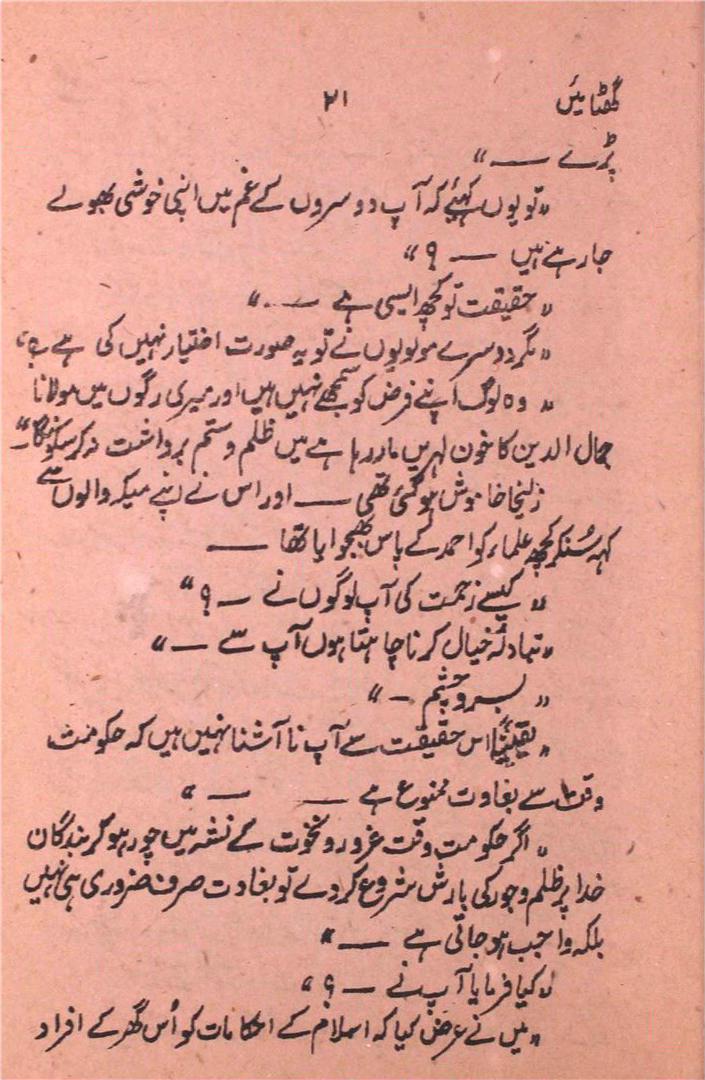 گھٹائیں ۳۱
پڑے ــــ"
"تو یوں کہیئے کہ آپ دوسروں کے غم میں اپنی خوشی بھولے
جا رہے ہیں ــــ ؟"
"حقیقت تو کچھ ایسی ہے ــــ"
"مگر دوسرے مولویوں نے تو یہ صورت اختیار نہیں کی ہے ؟"
"وہ لوگ اپنے فرض کو سمجھے نہیں ہیں اور میری رگوں میں مولانا
جمال الدین کا خون لہریں مار رہا ہے میں ظلم و ستم برداشت نہ کر سکونگا ــ"
زلیخا خاموش ہو گئی تھی ــــ اور اس نے اپنے میکہ والوں سے
کہہ سُنکر کچھ علماء کو احمد کے پاس بھجوایا تھا ــــ
"کیسے زحمت کی آپ لوگوں نے ــ ؟"
"تبادلۂ خیال کرنا چاہتا ہوں آپ سے ــــ"
"بسر و چشم ــ"
"یقیناً اس حقیقت سے آپ نا آشنا نہیں ہیں کہ حکومت
وقت سے بغاوت ممنوع ہے ــــ ــــ"
"اگر حکومت وقت غرور و نخوت کے نشہ میں چور ہو کر بندگان
خدا پر ظلم و جور کی بارش شروع کر دے تو بغاوت صرف ضروری ہی نہیں
بلکہ واجب ہو جاتی ہے ــــ"
"کیا فرمایا آپ نے ــ ؟"
"میں نے عرض کیا کہ اسلام کے احکامات کو اُس گھر کے افراد